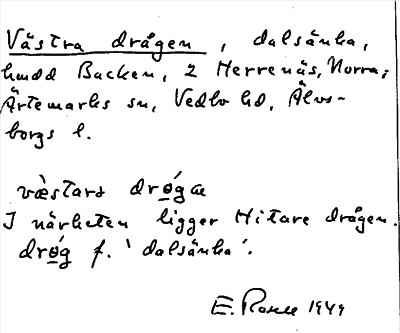 Västra drågen, dalsänka,
hmdd Backen, 2 Herrenäs, Norra;
Ärtemarks sn, Vedbo hd, Älvs-
borgs l.
væ̀stars dró̱gæ
I närheten ligger Hitare drågen.
dró̱g f. 'dalsänka'.
E. Rosell 1949